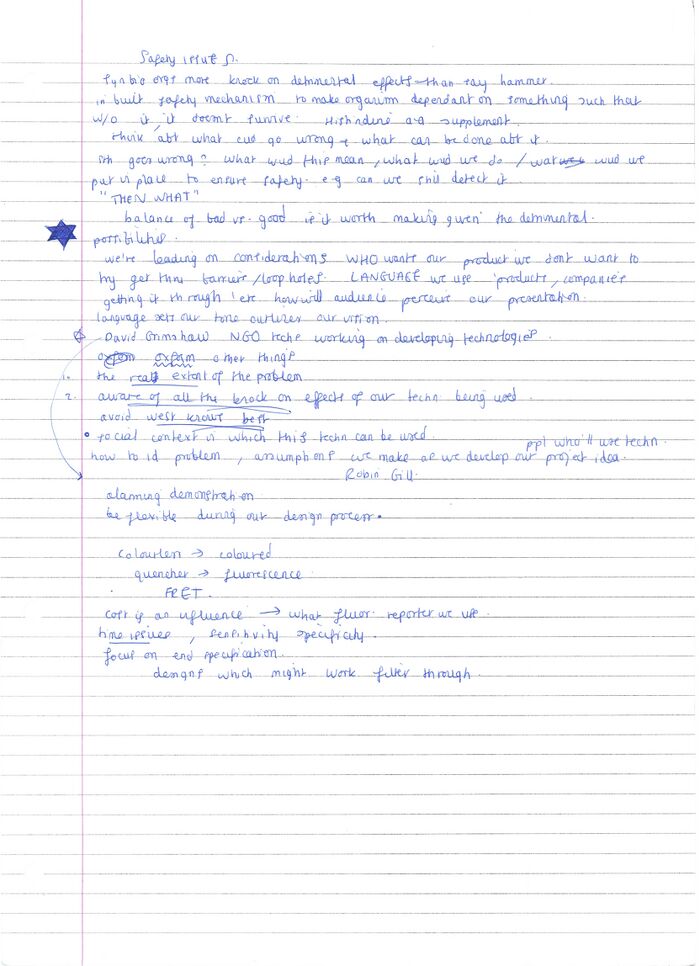 Safety issues.
Synbio orgs more knock on detrimental effects than say hammer.
in built safety mechanism to make organism dependant on something such that
w/o it, it doesn't survive. Histidine a.g supplement.
think abt what cud go wrong + what can be done abt it.
sth goes wrong? what wud this mean, what wud we do / wat wud we
put in place to ensure safety. e.g can we still detect it
"THEN WHAT"
balance of bad vs. good is it worth making given the detrimental
possibilities.
we're leading on considerations WHO wants our product we don't want to
try get thru barriers/loopholes. LANGUAGE we use 'products, companies
getting it through' etc how will audience perceive our presentation.
language sets our tone outlines our vision.
David Grimshaw NGO techs working on developing technologies
oxfam other things
1. the real extent of the problem
2. aware of all the knock on effects of our techn being used.
avoid west knows best
• social context in which this techn can be used. ppl who'll use techn.
how to id problem, assumptions we make as we develop our project idea.
Robin Gill.
alarming demonstration
be flexible during our design process.
colourless → coloured
quencher → fluorescence
FRET.
cost is an influence → what fluor. reporter we use.
time issues, sensitivity specificity.
focus on end specification.
designs which might work filter through.